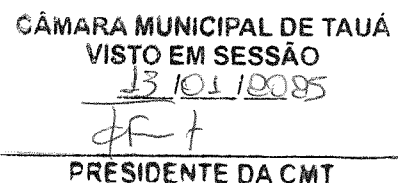 CÂMARA MUNICIPAL DE TAUÁ
VISTO EM SESSÃO
13/01/2025
PRESIDENTE DA CMT